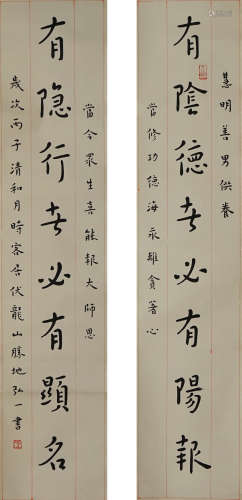 慧明善男供養
有陰德者必有陽報
當修功德海永離貪著心
當令眾生喜能報大師恩
有隱行者必有顯名
歲次丙子清和月時客居伏龍山勝地弘一書